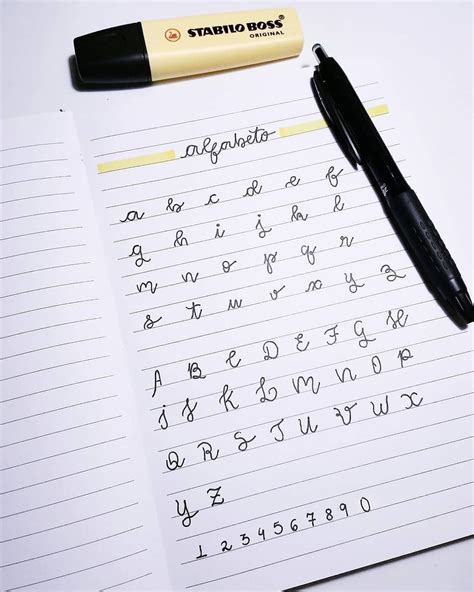 STABILO BOSS
ORIGINAL
alfabeto
a b c d e f
g h i j k l
m n o p q r
s t u v w x y z
A B C D E F G H
I J K L M N O P
Q R S T U V W X
Y Z
1 2 3 4 5 6 7 8 9 0